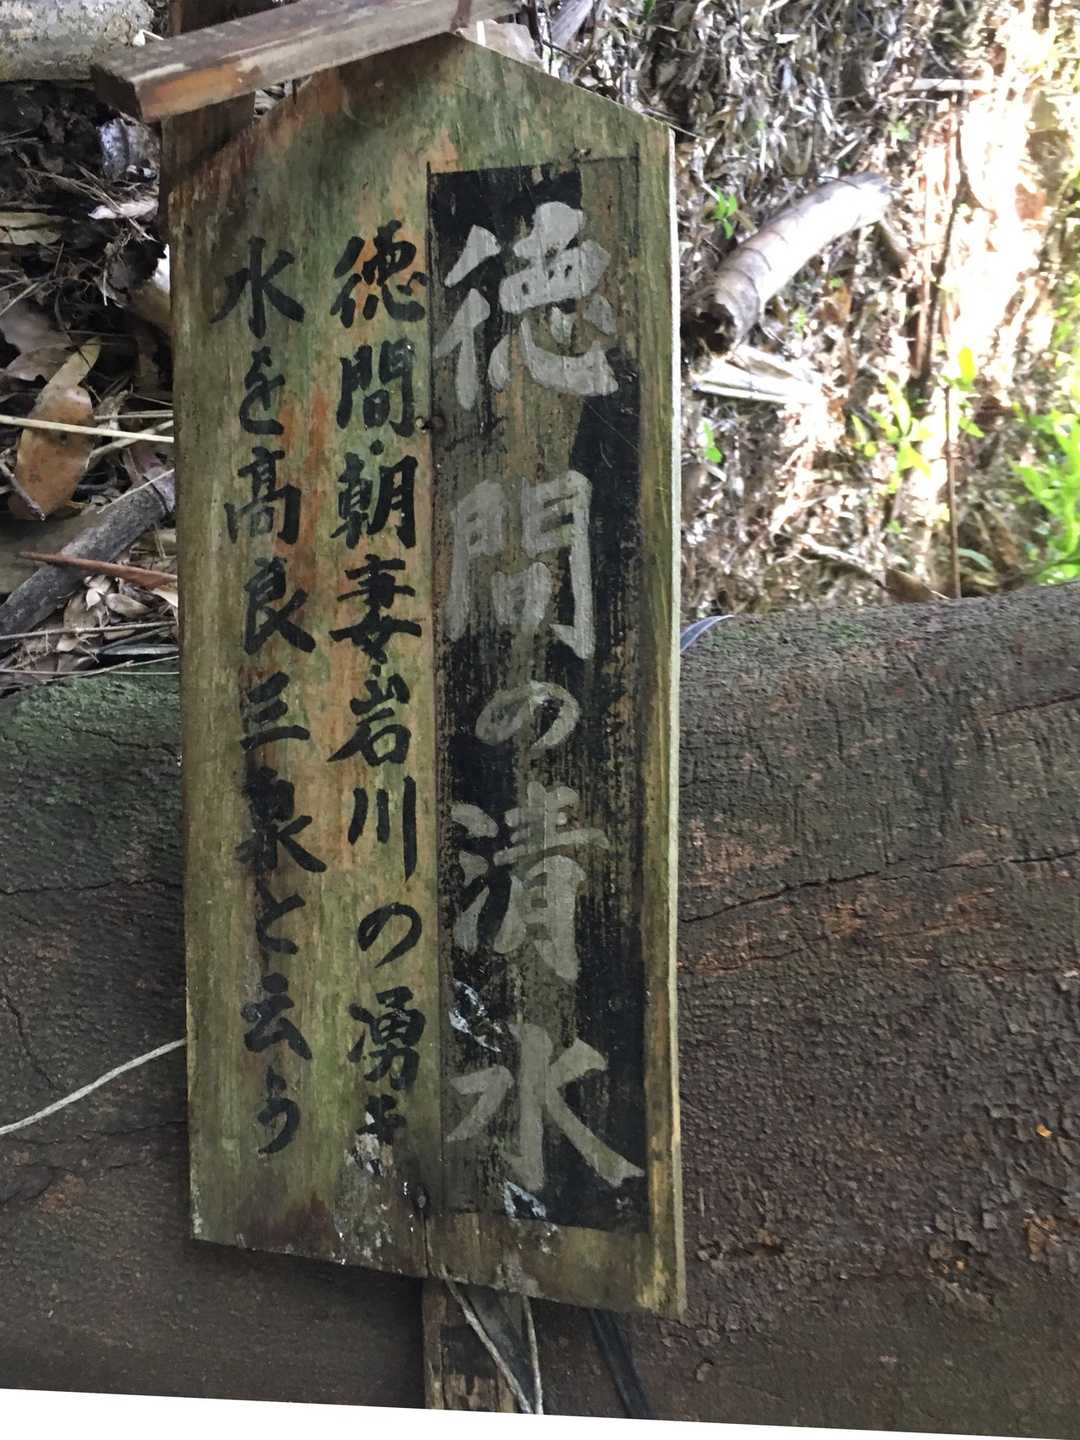 徳間の清水
徳間・朝妻・岩川の湧き
水を高良三泉と云う